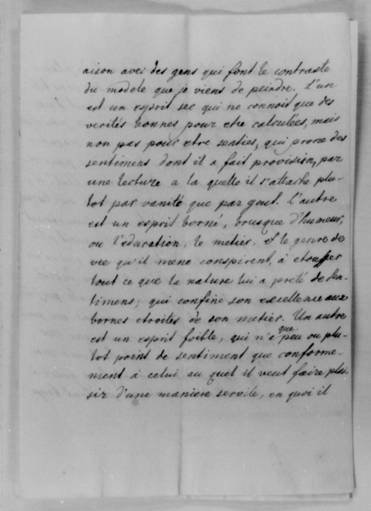 aison avec des gens qui font le contraste
du modele que je viens de peindre. L'un
est un esprit sec qui ne connoit que des
verités bonnes pour etre calculées, mais
non pas pour etre senties, qui prone des
sentimens dont il a fait provision, par
une lecture a la quelle il s'attache plu-
tot par vanité que par gout. L'autre
est un esprit borné, brusque d'humeur,
ou l'education, le metier, et le genre de
vie qu'il mene conspirent, à etouffer
tout ce que la nature lui a preté de sen-
timens; qui confine son excellence aux
bornes etroites de son metier. Un autre
est un esprit foible, qui n'a que peu ou plu-
tot point de sentiment que conforme-
ment à celui au quel il veut faire plai-
sir d'une maniere servile, en quoi il